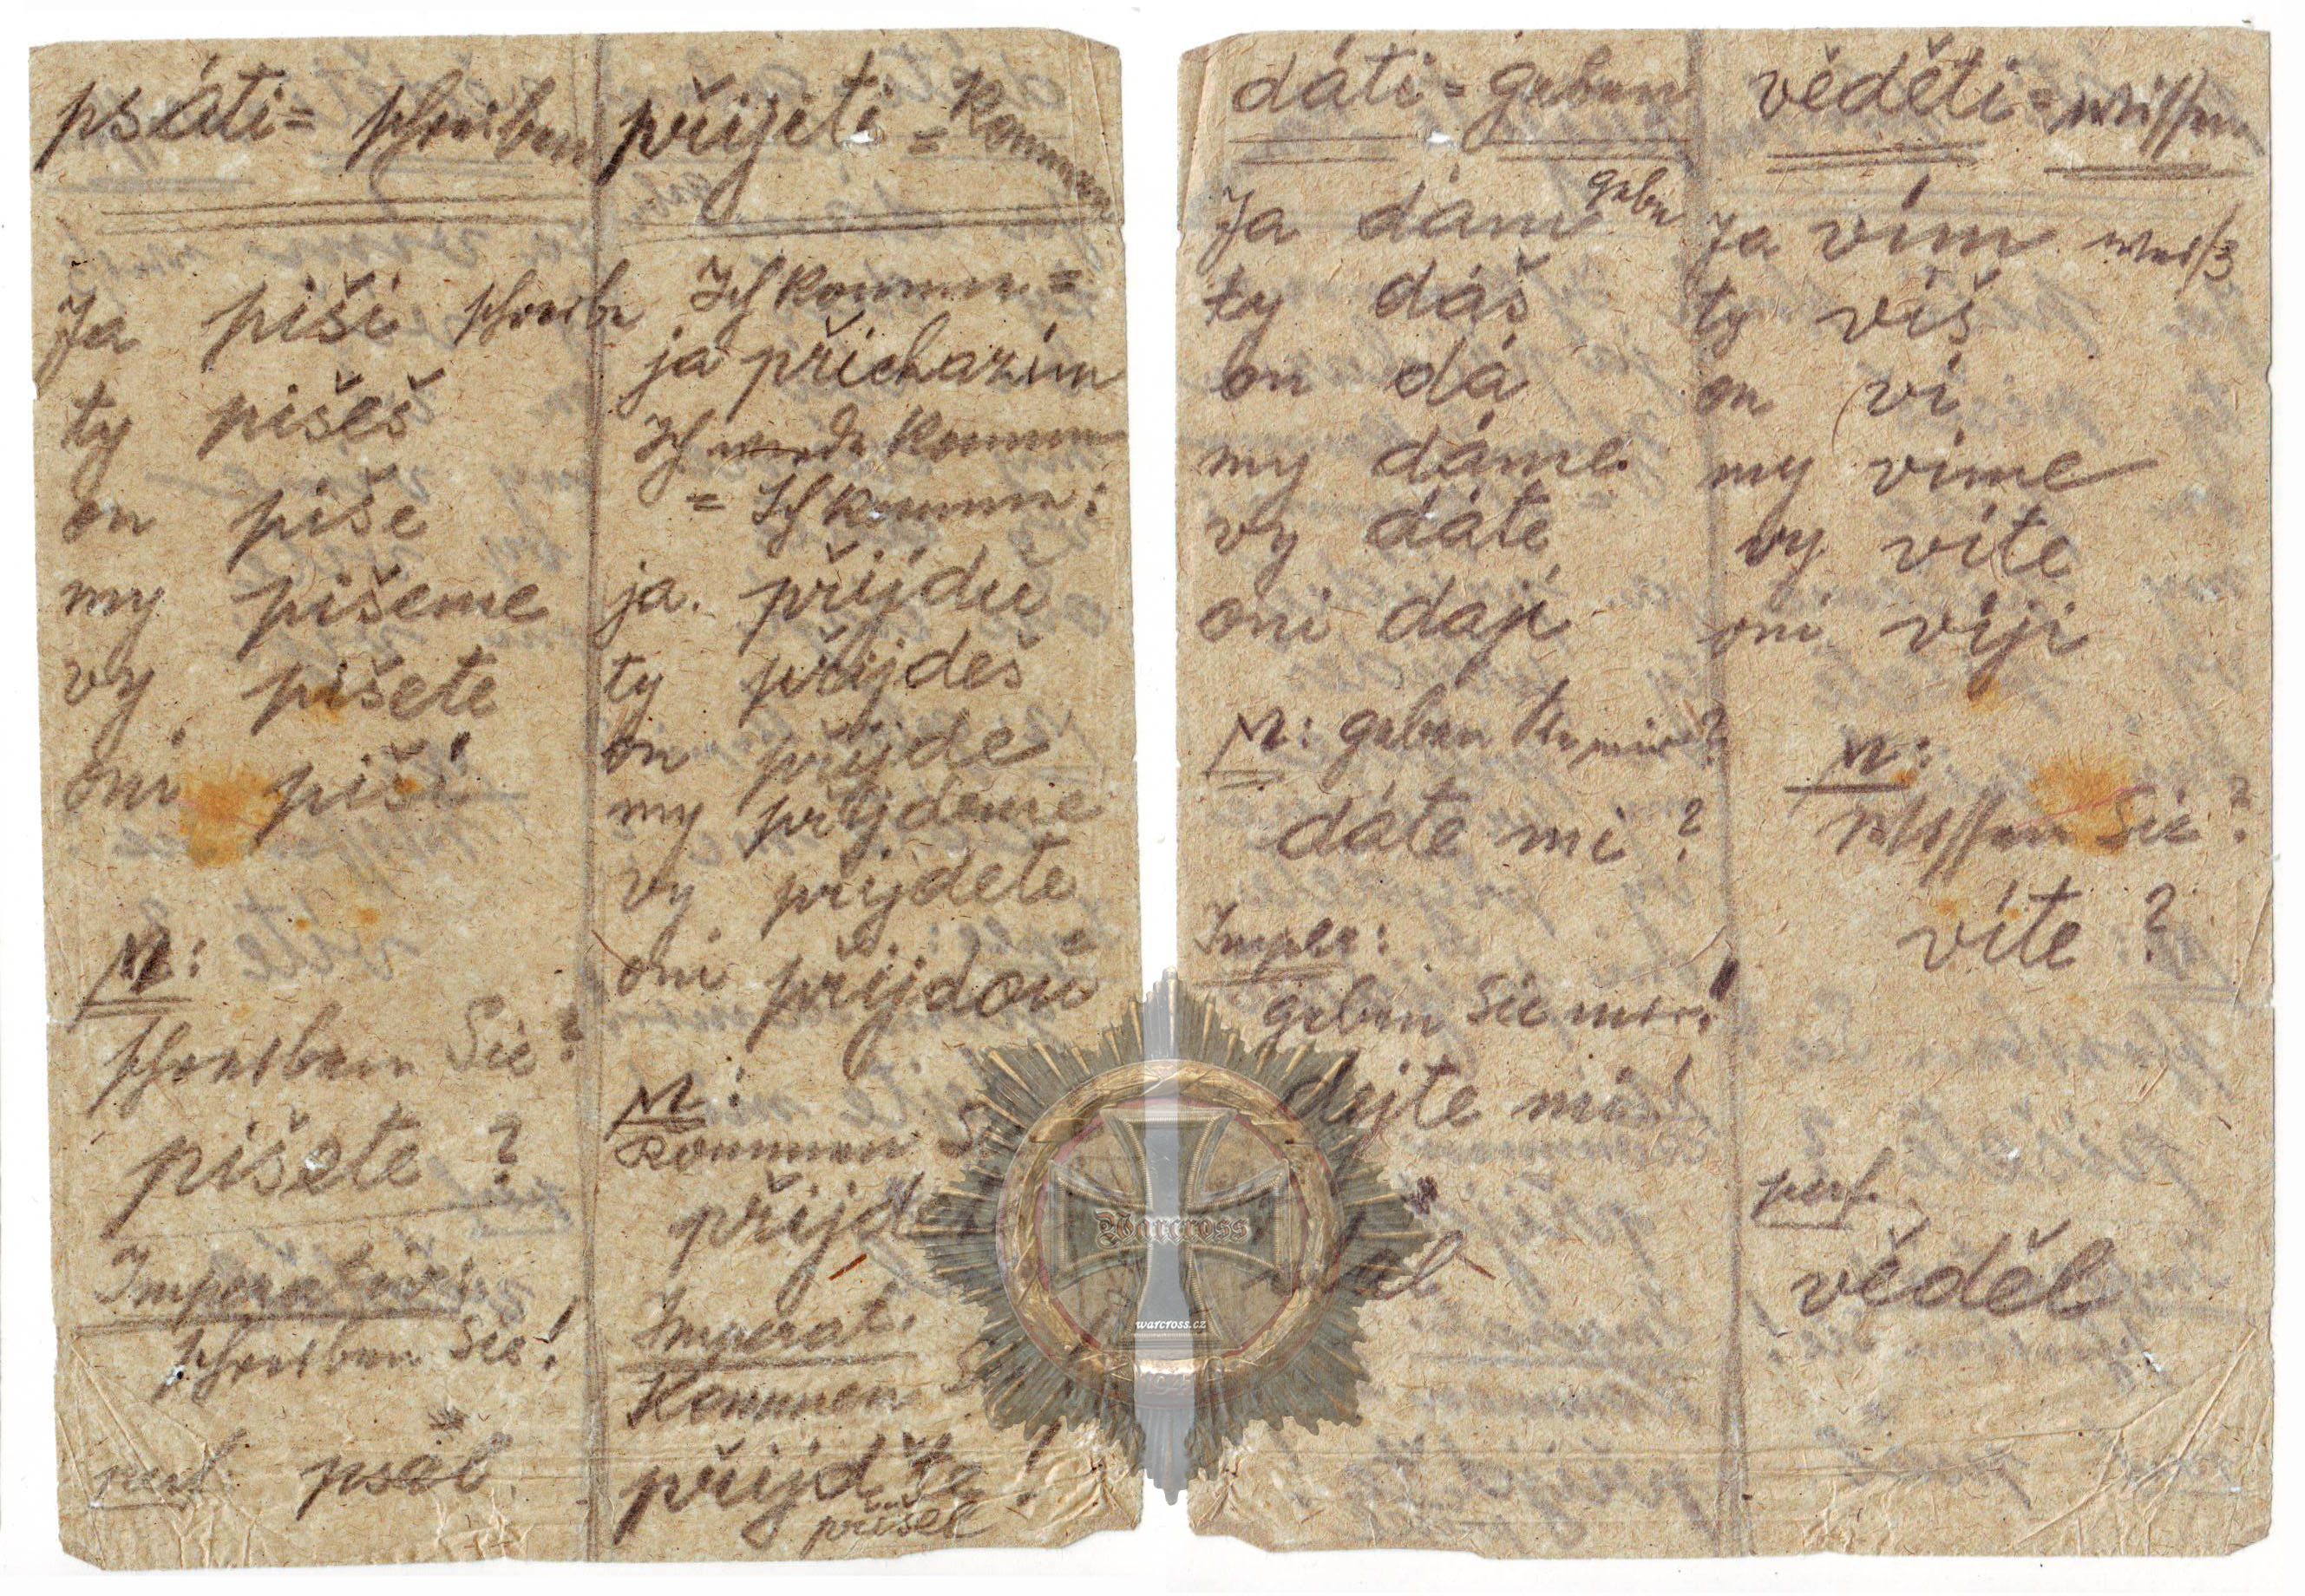 psáti = schreiben
Ja piši schreibe
ty pišeš
on piše
my pišeme
vy pišete
oni piší
N:
schreiben Sie?
pišete ?
Imperativ:
schreiben Sie!
perf. psal
přijeti = kommen
Ich komme =
ja přichazím
Ich werde kommen
= Ich komme:
ja přijdu
ty přijdeš
on přijde
my přijdeme
vy přijdete
oni přijdou
N:
Kommen
Imperat.
Kommen
přijdťe !
přišel
dáti = geben
Ja dám gebe
ty dáš
on dá
my dáme
vy dáte
oni dají
N: geben Sie mir?
dáte mi ?
Imper:
geben Sie mir!
dejte mi!
věděti = wissen
Ja vím weiß
ty víš
on ví
my víme
vy víte
oni víji
N:
wissen Sie?
víte ?
perf.
věděl
Warcross
warcross.cz